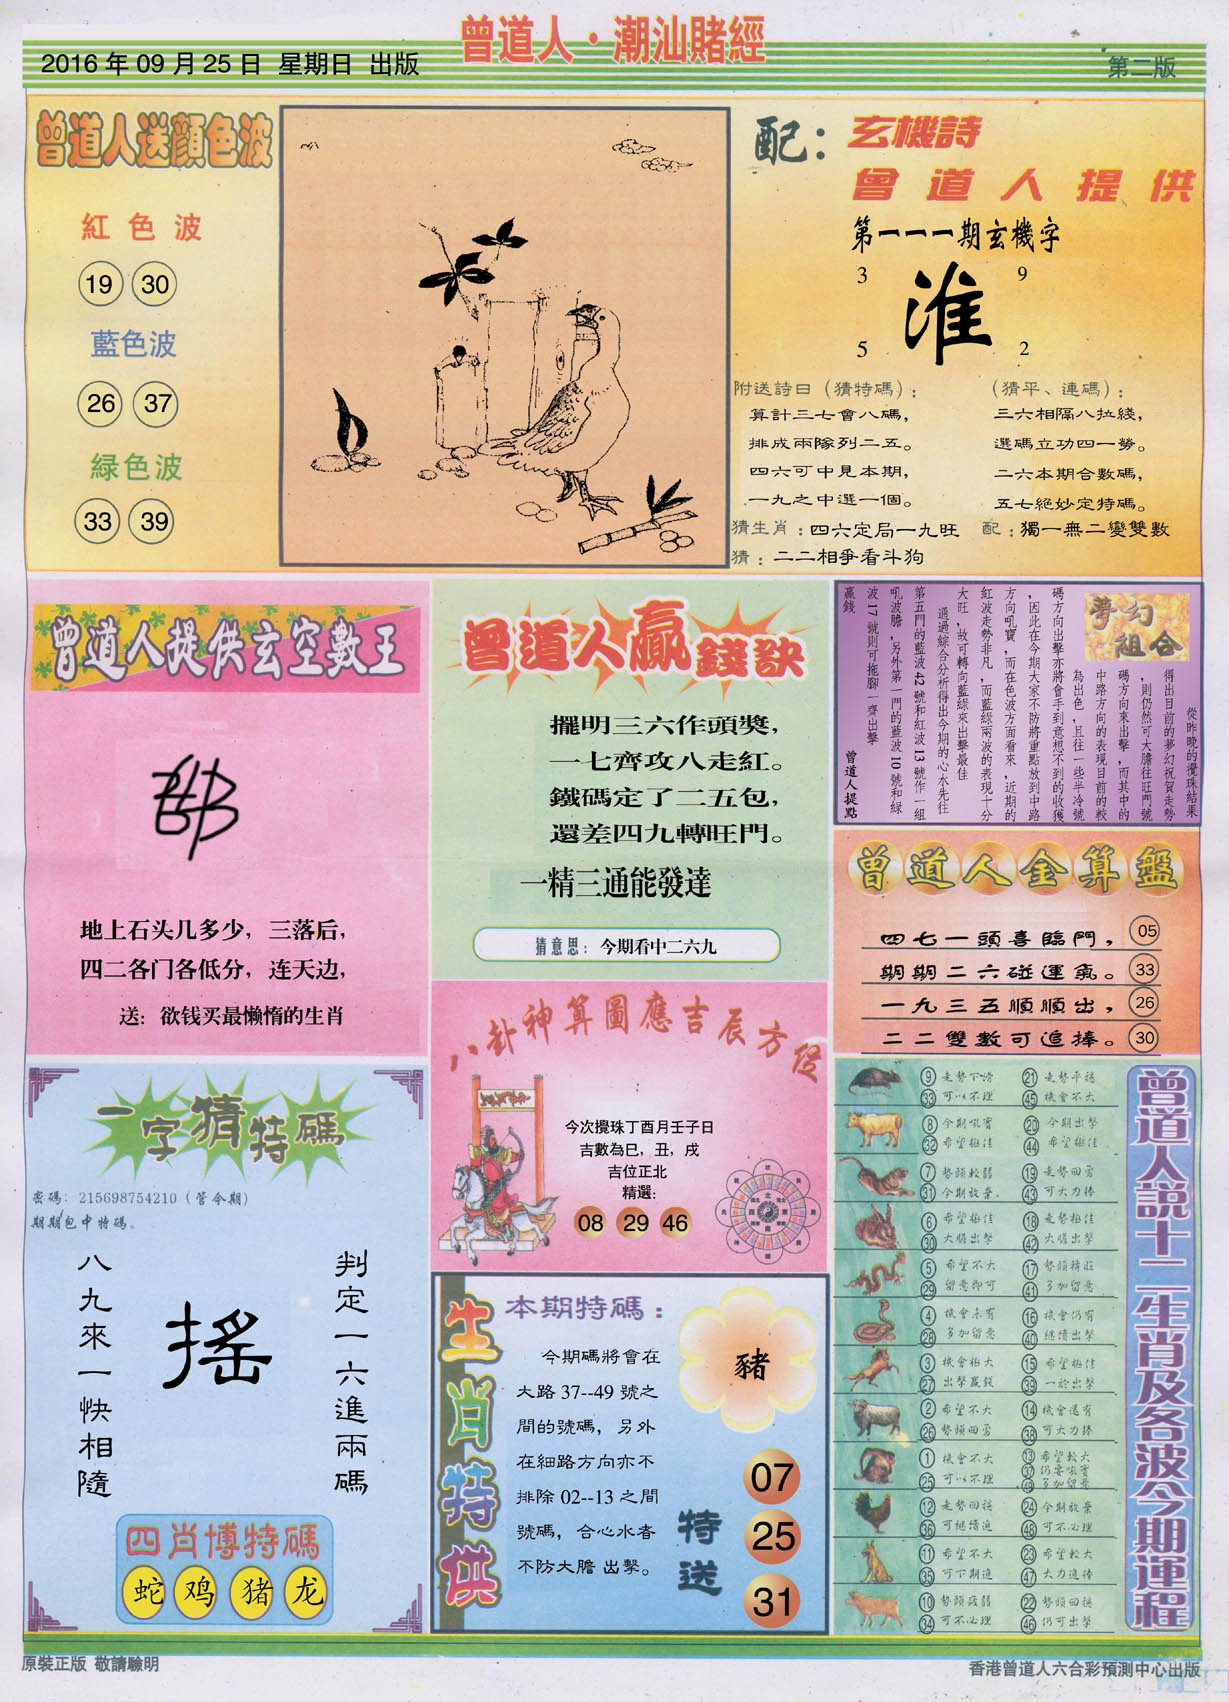 曾道人·潮汕賭經
2016年09月25日 星期日 出版
第二版
曾道人送顏色波
紅色波
19 30
藍色波
26 37
緑色波
33 39
配：玄機詩
曾道人提供
第一一一期玄機字
3 9
淮
5 2
附送詩曰（猜特碼）：
算計三七會八碼，
排成兩隊列二五。
四六可中見本期，
一九之中選一個。
（猜平、連碼）：
三六相隔八拉綫，
選碼立功四一勞。
二六本期合數碼，
五七絕妙定特碼。
猜生肖：四六定局一九旺
配：獨一無二變雙數
猜：二二相爭看斗狗
曾道人提供玄空數王
地上石头几多少，三落后，
四二各门各低分，连天边，
送：欲钱买最懒惰的生肖
曾道人贏錢訣
擺明三六作頭獎，
一七齊攻八走紅。
鐵碼定了二五包，
還差四九轉旺門。
一精三通能發達
猜意思：今期看中二六九
夢幻組合
從昨晚的攪珠結果
得出目前的夢幻祝賀走勢
，則仍然可大膽往旺門號
碼方向來出擊，而其中的
中路方向的表現目前的較
為出色，且往一些半冷號
碼方向出擊亦將會手到意想不到的收獲
，因此在今期大家不防將重點放到中路
方向吼寶，而在色波方面看來，近期的
紅波走勢非凡，而藍綠兩波的表現十分
大旺，故可轉向藍綠來出擊最佳
通過綜合分析得出今期的心水先往
第五門的藍波42號和紅波13號作一組
吼波膽，另外第一門的藍波10號和綠
波17號則可拖腳一齊出擊
贏錢
曾道人提點
曾道人金算盤
四七一頭喜臨門， 05
期期二六碰運氣。 33
一九三五順順出， 26
二二雙數可追捧。 30
八卦神算圖應吉辰方位
今次攪珠丁酉月壬子日
吉數為巳，丑，戌
吉位正北
精選：
08 29 46
一字猜特碼
密碼：215698754210（管令期）
期期包中特碼。
判定一六進兩碼
搖
八九來一快相隨
四肖博特碼
蛇 鸡 猪 龙
生肖特供
本期特碼：
今期碼將會在
大路37--49號之
間的號碼，另外
在細路方向亦不
排除02--13之間
號碼，合心水者
不防大膽 出擊。
豬
特送
07
25
31
曾道人説十二生肖及各波今期運程
9 走勢下滑 21 走勢平穩
33 可以不理 45 機會不大
8 今期吼實 20 今期出擊
32 希望極佳 44 希望極佳
7 勢頭較弱 19 走勢回勇
31 今期放棄。 43 可大力捧
6 希望極佳 18 走勢極佳
30 大膽出擊 42 大膽出擊
5 希望不大 17 勢頭轉旺
29 留意即可 41 多加留意
4 機會未有 16 機會仍有
28 多加留意 40 繼續出擊
3 機會極大 15 希望極佳
27 出擊贏錢 39 一於出擊
2 希望不大 14 機會還有
26 勢頭回勇 38 可大力捧
1 機會不大 13 希望較大
25 可以不理 37 仍要吼實
49 多加留意
12 走勢回穩 24 今期放棄
36 可繼續追 48 可不必理
11 希望不大 23 希望較大
35 可下期追 47 大力追捧
10 勢頭疲弱 22 勢頭回穩
34 可不必理 46 仍可出擊
原裝正版 敬請驗明
香港曾道人六合彩預測中心出版